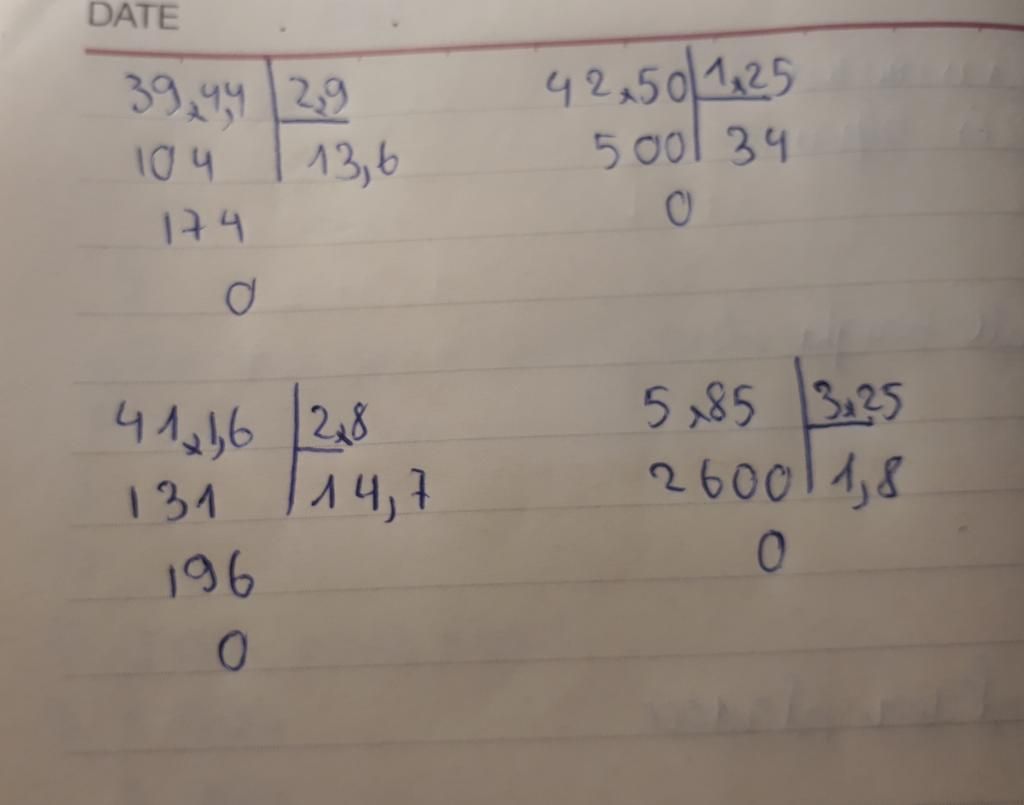 DATE
39,4,4 2,9
104 13,6
174
0
42,50 1,25
500 34
0
41,1,6 2,8
131 14,7
196
0
5,85 3,25
2600 1,8
0